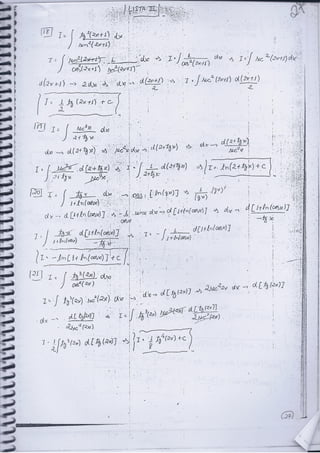 LISTA II
27
18 I = ∫ tg²(2x+1) / sen²(2x+1) dx
I = ∫ sen²(2x+1) / cos²(2x+1) · 1 / sen²(2x+1) dx ⇒ I = ∫ 1 / cos²(2x+1) dx ⇒ I = ∫ sec²(2x+1) dx
d(2x+1) → 2dx ⇒ dx → d(2x+1) / 2 ⇒ I = ∫ sec²(2x+1) d(2x+1) / 2
I = 1/2 tg (2x+1) + C
19 I = ∫ sec²x / 2+tgx dx
dx → d(2+tgx) ⇒ sec²x dx → d(2+tgx) ⇒ dx → d(2+tgx) / sec²x
I = ∫ sec²x / 2+tgx d(2+tgx) / sec²x ⇒ I = ∫ 1 / 2+tgx d(2+tgx) ⇒ I = ln(2+tgx) + C
20 I = ∫ tgx / 1+ln(cosx) dx → OBS: [ln(gx)]' ⇒ 1/(gx) · (gx)'
dx → d[1+ln(cosx)] ⇒ -1/cosx senx dx → d[1+ln(cosx)] ⇒ dx → d[1+ln(cosx)] / -tgx
I = ∫ tgx / 1+ln(cosx) d[1+ln(cosx)] / -tgx ⇒ I = -∫ 1 / 1+ln(cosx) d[1+ln(cosx)]
I = -ln[1+ln(cosx)] + C
21 I = ∫ tg³(2x) / cos²(2x) dx
I = ∫ tg³(2x) sec²(2x) dx ⇒ dx → d[tg(2x)] ⇒ 2sec²2x dx → d[tg(2x)]
dx → d[tg(2x)] / 2sec²(2x) ⇒ I = ∫ tg³(2x) sec²(2x) d[tg(2x)] / 2sec²(2x)
I = 1/2 ∫ tg³(2x) d[tg(2x)] ⇒ I = 1/8 tg⁴(2x) + C